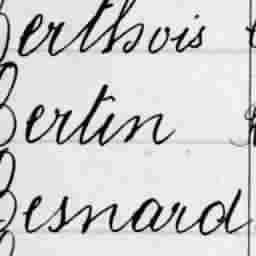 Berthois
Bertin
Besnard